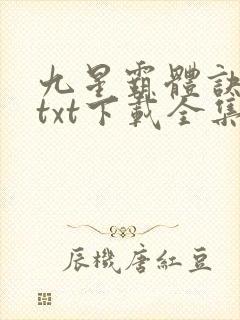 九星霸體訣
txt下載全集
辰機唐紅豆